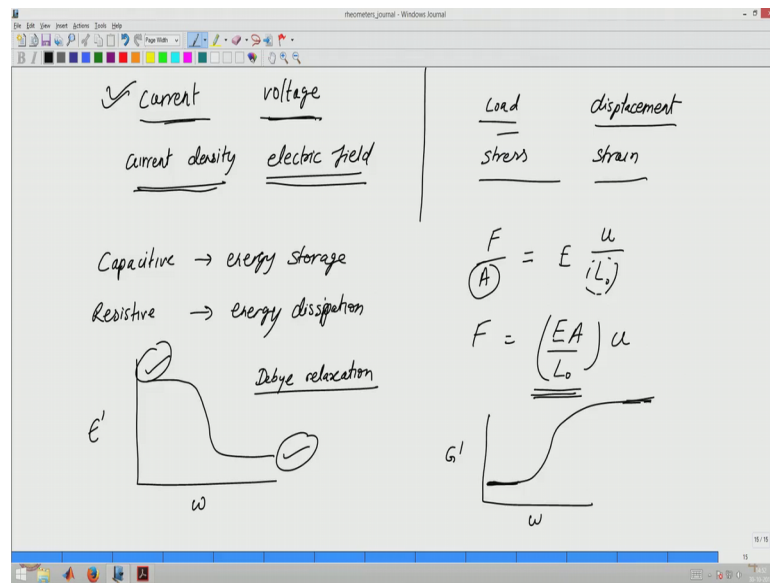 rheometers_journal - Windows Journal
File Edit View Insert Actions Tools Help
Page Width
B I
Current voltage
Current density electric field
Load displacement
stress strain
Capacitive → energy storage
Resistive → energy dissipation
F/A = E u/L₀
F = (EA/L₀) u
Debye relaxation
ε'
ω
G'
ω
15 / 15
15